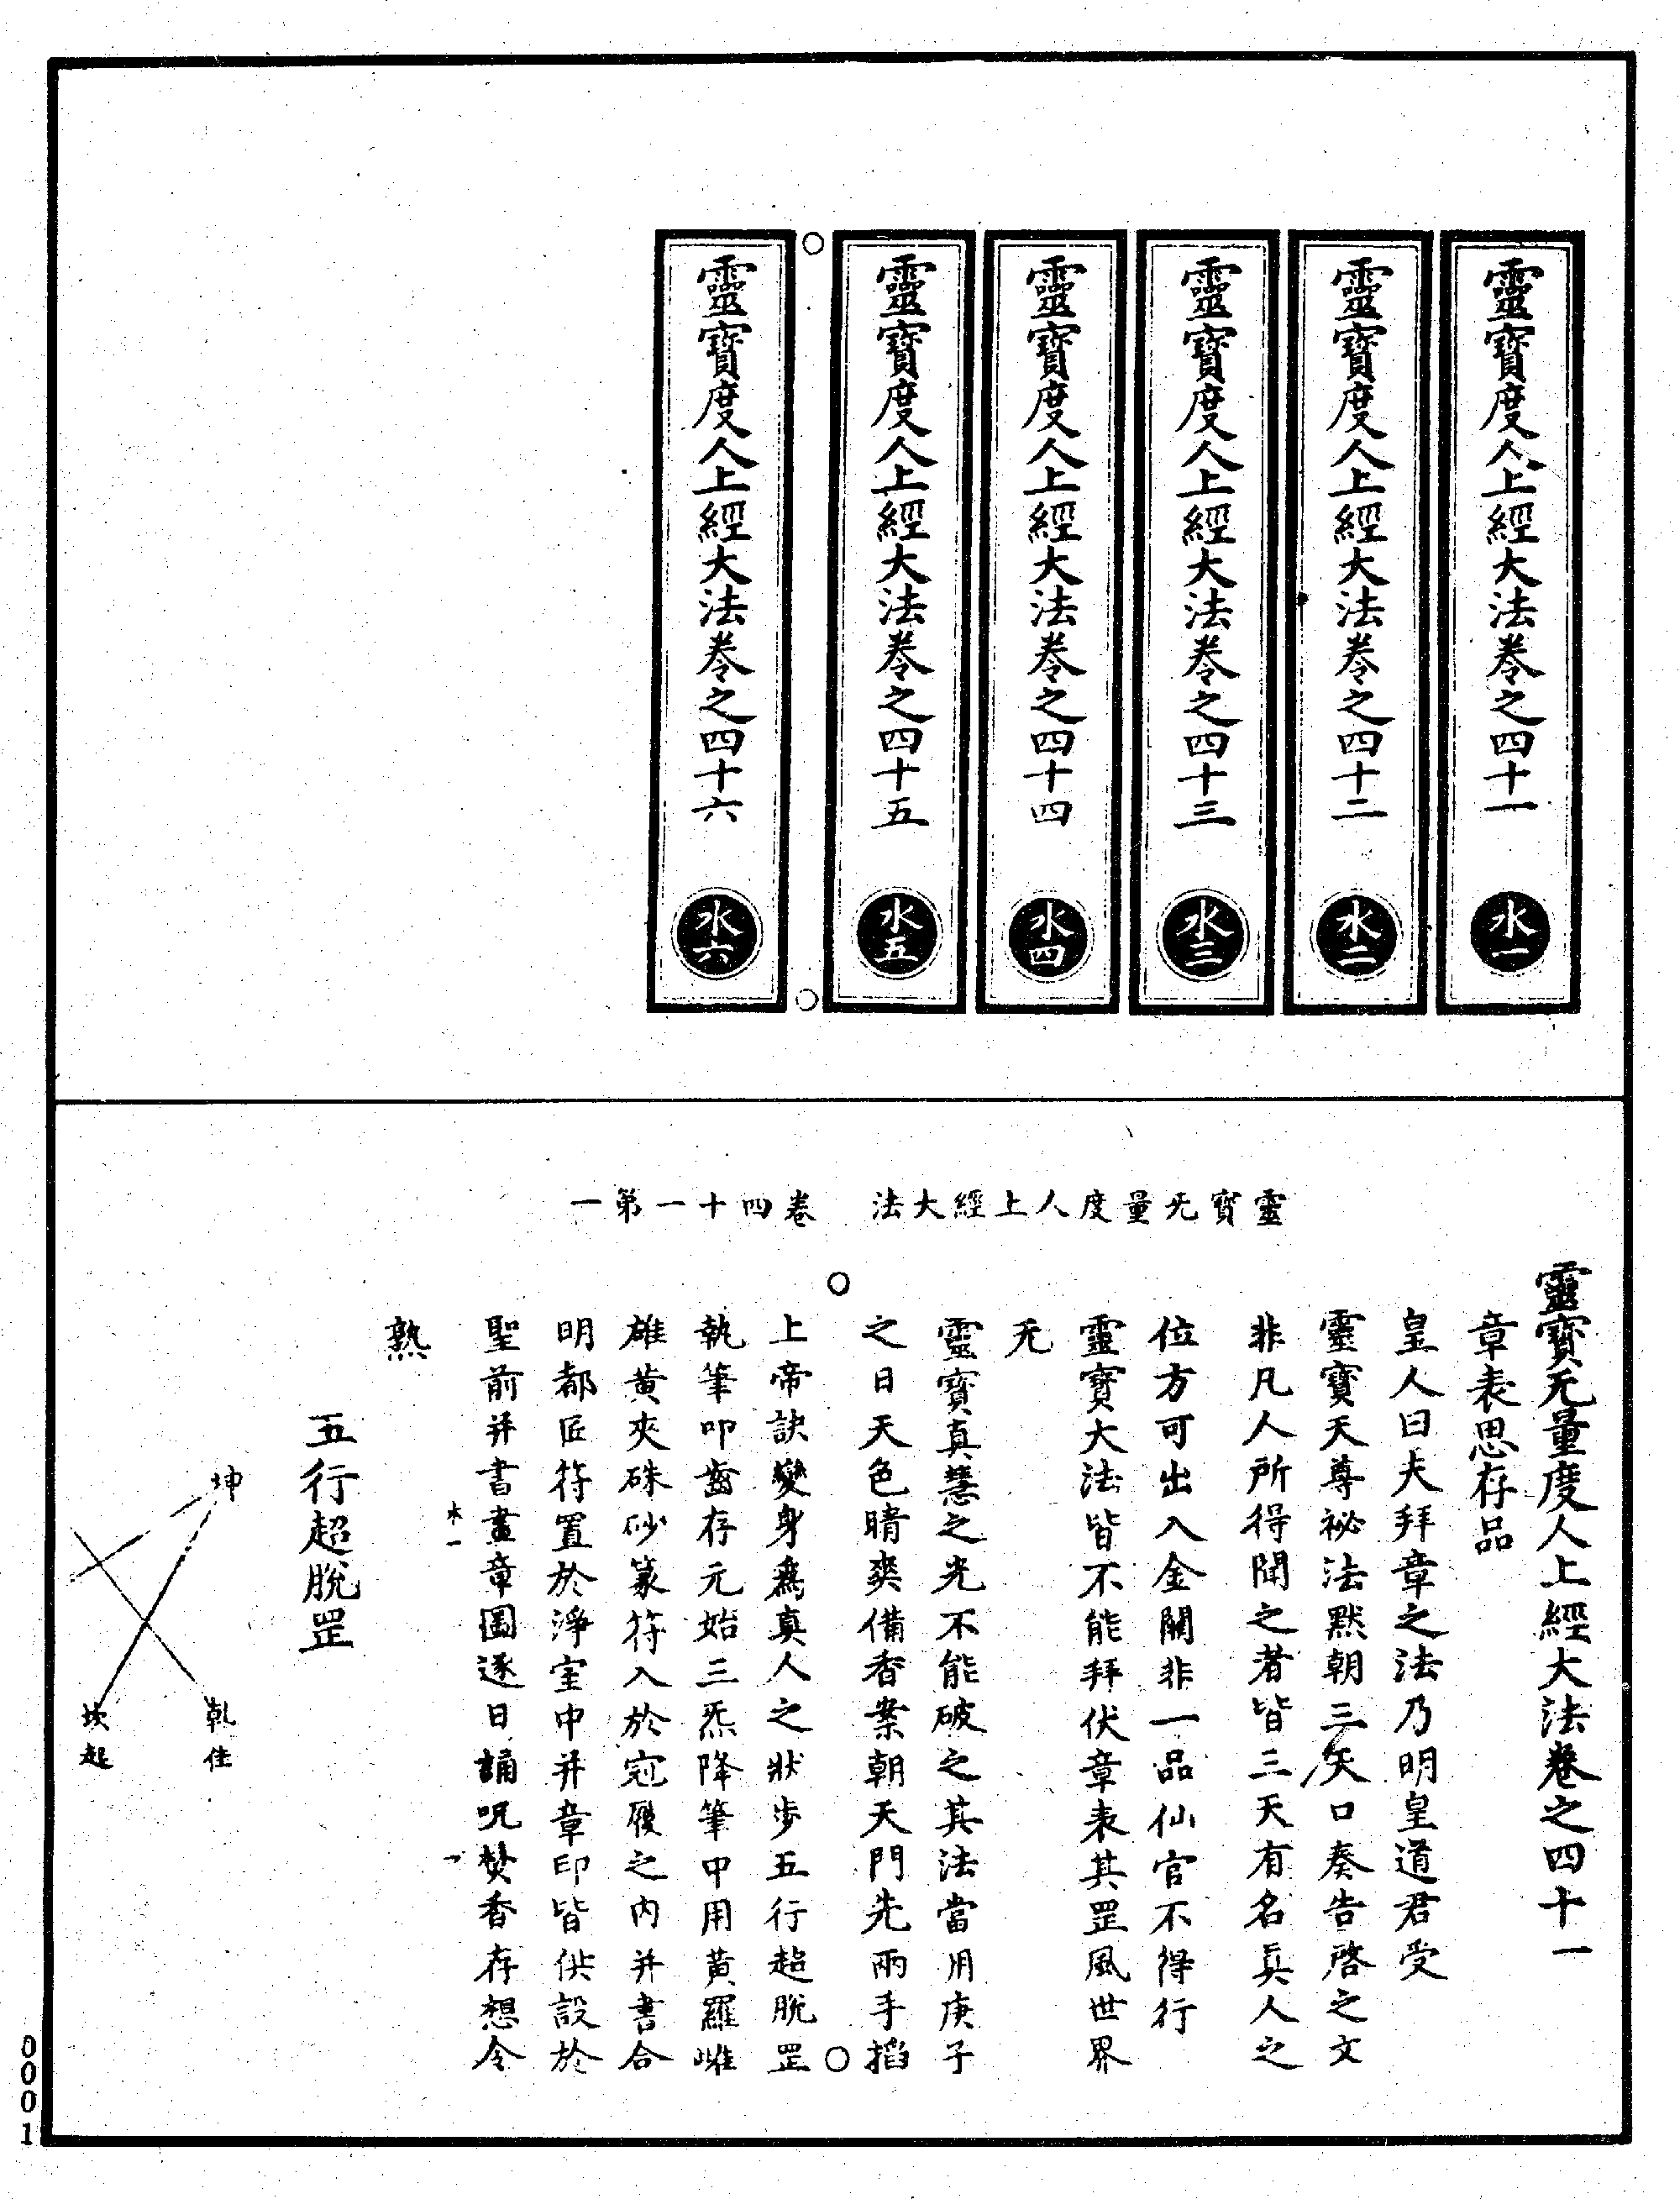 靈寶度人上經大法卷之四十一
水一
靈寶度人上經大法卷之四十二
水二
靈寶度人上經大法卷之四十三
水三
靈寶度人上經大法卷之四十四
水四
靈寶度人上經大法卷之四十五
水五
靈寶度人上經大法卷之四十六
水六
靈寶无量度人上經大法　卷四十一第一
靈寶无量度人上經大法卷之四十一
章表思存品
皇人曰夫拜章之法乃明皇道君受
靈寶天尊祕法默朝三天口奏告啓之文
非凡人所得聞之者皆三天有名真人之
位方可出入金關非一品仙官不得行
靈寶大法皆不能拜伏章表其罡風世界
无
靈寶真慧之光不能破之其法當用庚子
之日天色晴爽備香案朝天門先兩手掐
上帝訣變身爲真人之狀步五行超脫罡
執筆叩齒存元始三炁降筆中用黃羅雌
雄黃夾硃砂篆符入於冠履之內并書合
明都匠符置於淨室中并章印皆供設於
聖前并書畫章圖逐日誦呪焚香存想令
水一
一
熟
五行超脫罡
坤
乾
住
坎
起
0001